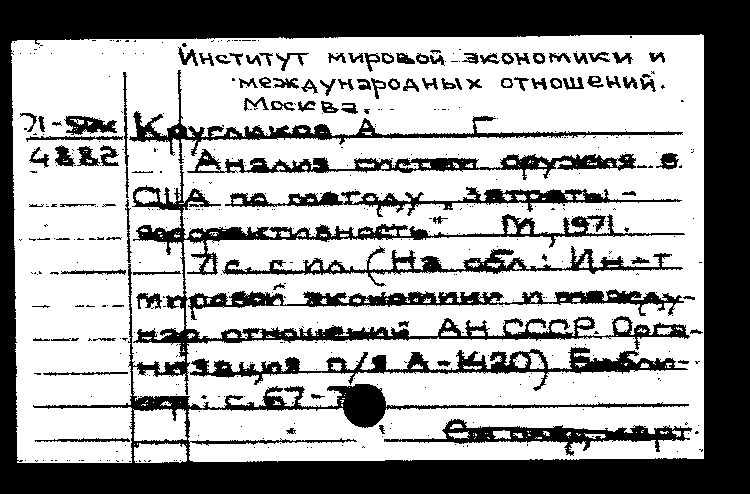 Институт мировой экономики и
международных отношений.
Москва.
Кругликов, А Г
4882 Анализ систем оружия в
США по методу „Затраты-
эффективность" М, 1971.
71с. с ил. (На обл.: Ин-т
мировой экономики и между-
нар. отношений АН СССР. Орга-
низация п/я А-1420) Библи-
огр.: с. 67-7